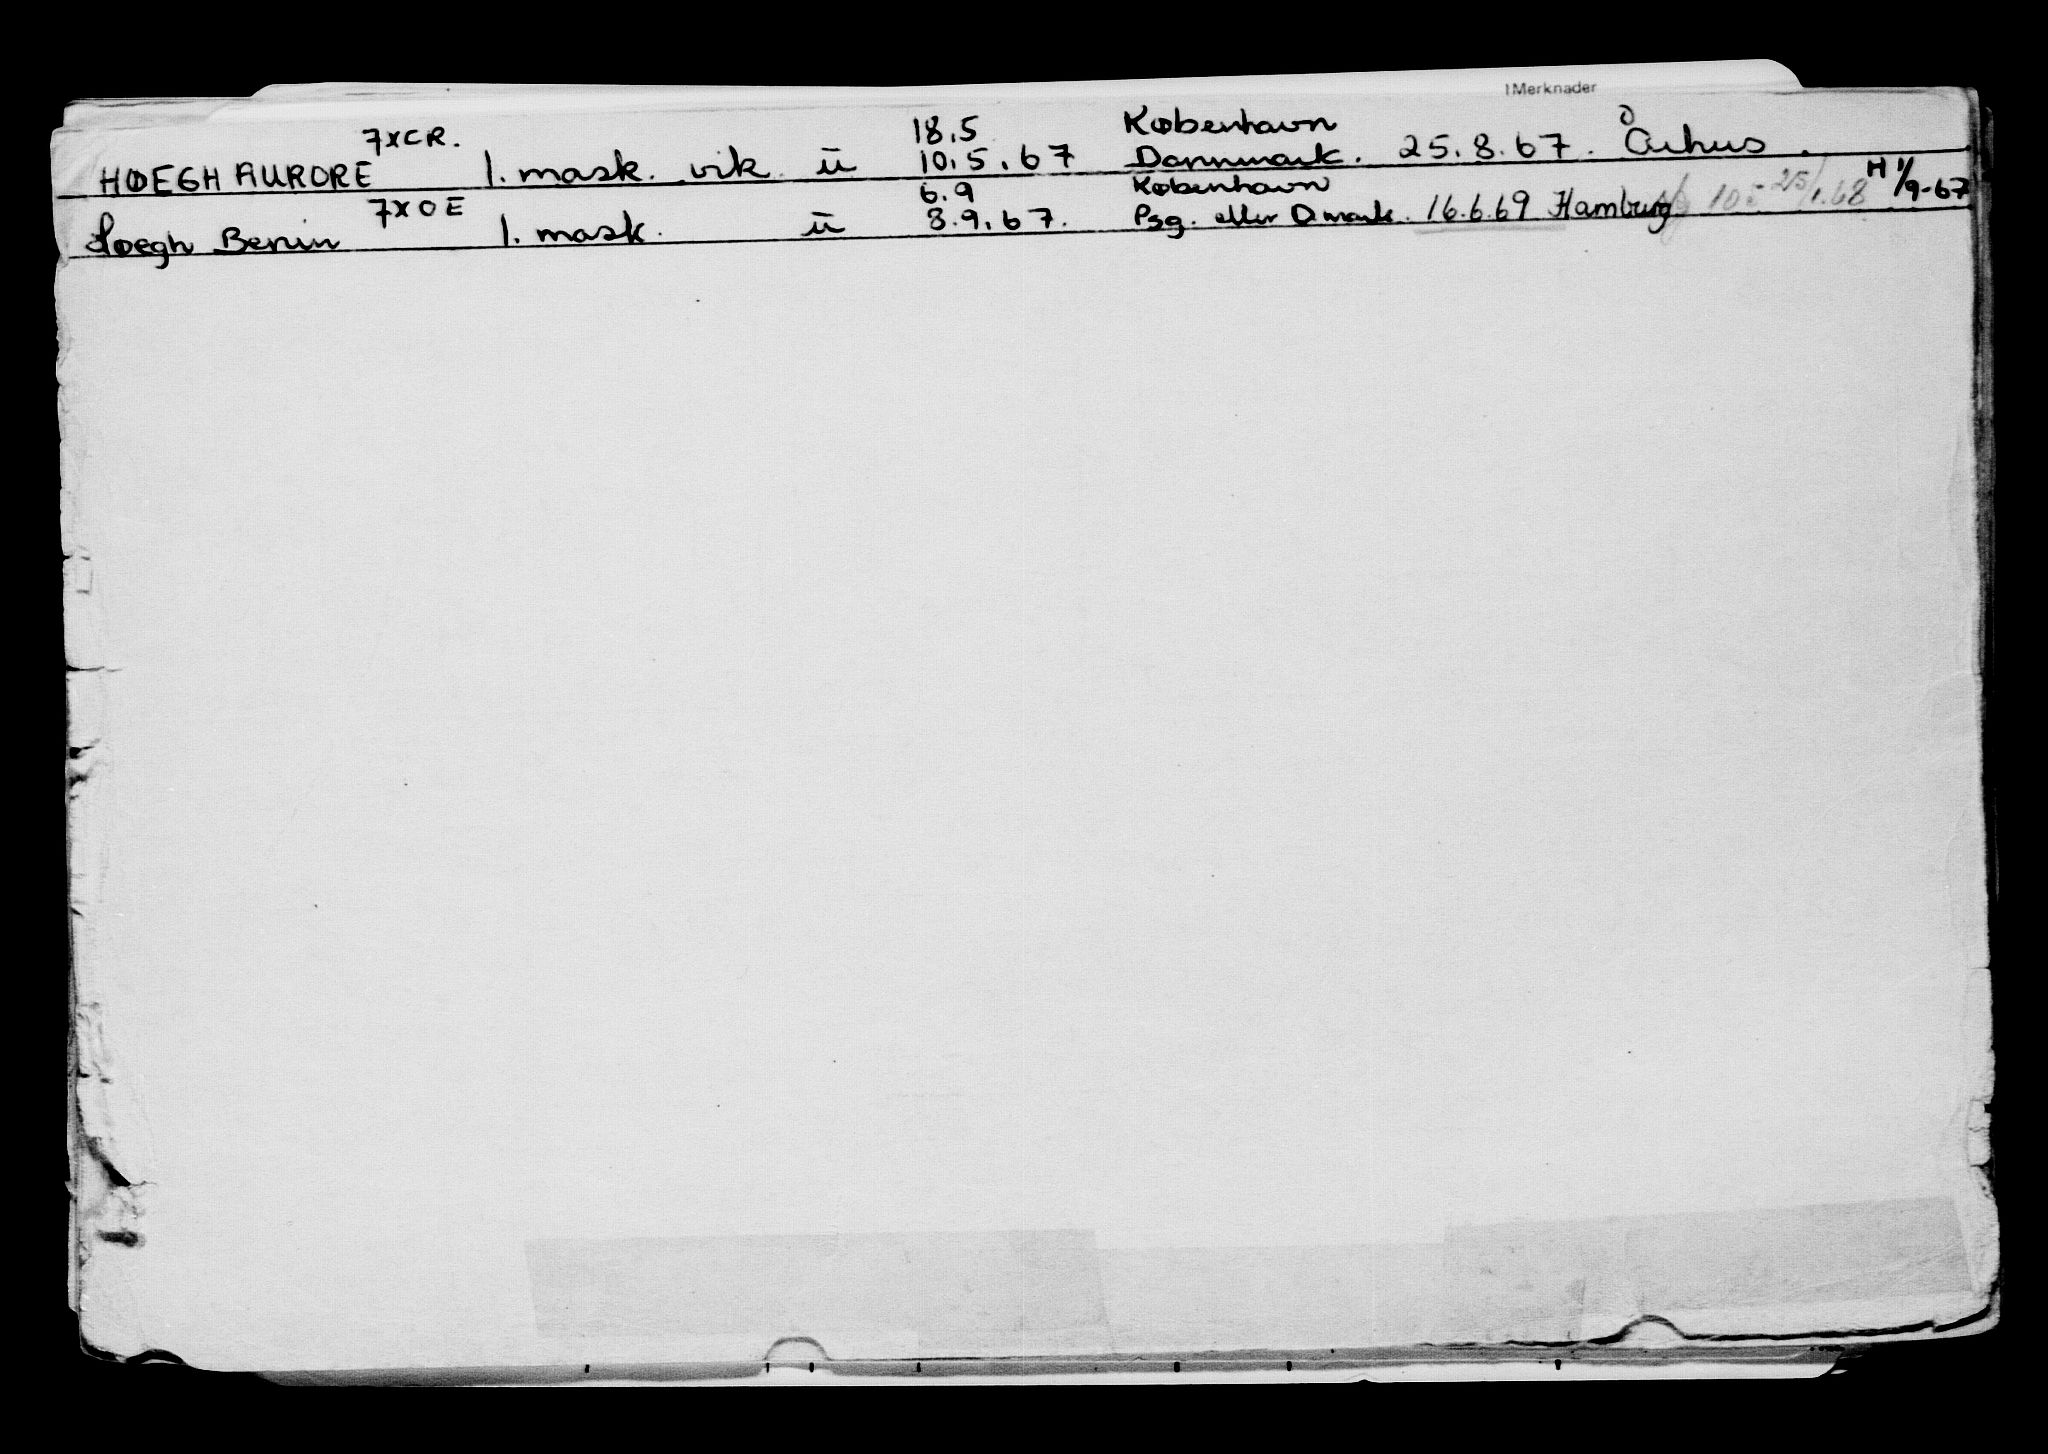 Merknader
7XCR. 18.5 København
HØEGH AURORE 1. mask. vik ū 10.5.67 Dannmark. 25.8.67. Århus.
7XOE 6.9 København H 1/9-67
Høegh Benin 1. mask. ū 8.9.67. Psg. eller Dmark. 16.6.69 Hamburg